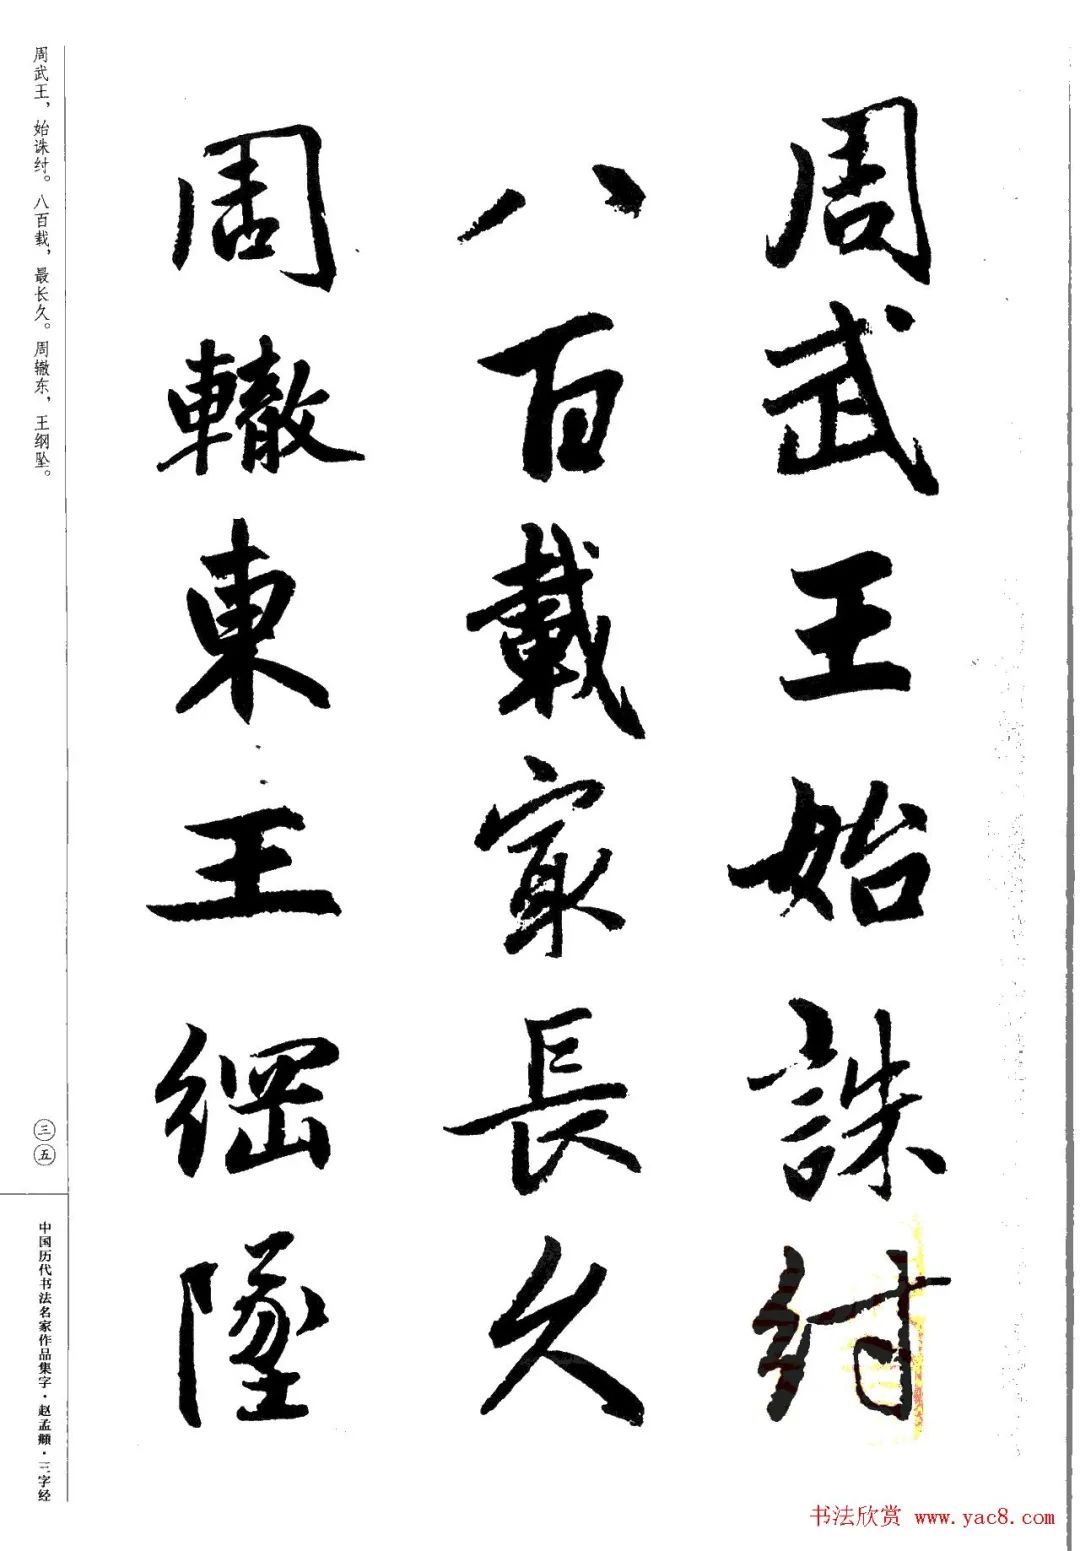 周武王始誅紂
八百載冣長久
周轍東王綱墜
周武王，始诛纣。八百载，最长久。周辙东，王纲坠。
三五
中国历代书法名家作品集字·赵孟頫·三字经
书法欣赏 www.yac8.com